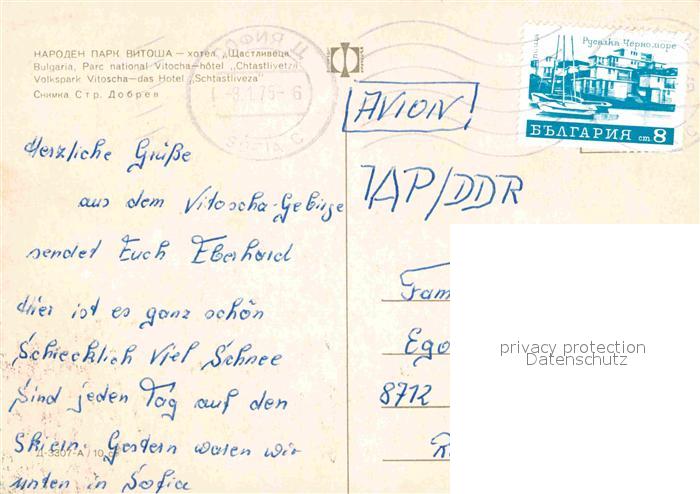 НАРОДЕН ПАРК ВИТОША — хотел „Щастливеца"
Bulgaria, Parc national Vitocha—hôtel „Chtastlivetza"
Volkspark Vitoscha—das Hotel „Schtastliveza"
Снимка Стр. Добрев
СОФИЯ Ц
8.1.75-6
SOFIA C
Русалка Черноморе
поща
БЪЛГАРИЯ ст. 8
AVION!
ДАР/DDR
Herzliche Grüße
aus dem Vitoscha-Gebirge
sendet Euch Eberhard
Hier ist es ganz schön
Schrecklich viel Schnee
Sind jeden Tag auf den
Skiern. Gestern waren wir
unten in Sofia
Д-3307-А
Fam
Ego
8712
R
privacy protection
Datenschutz